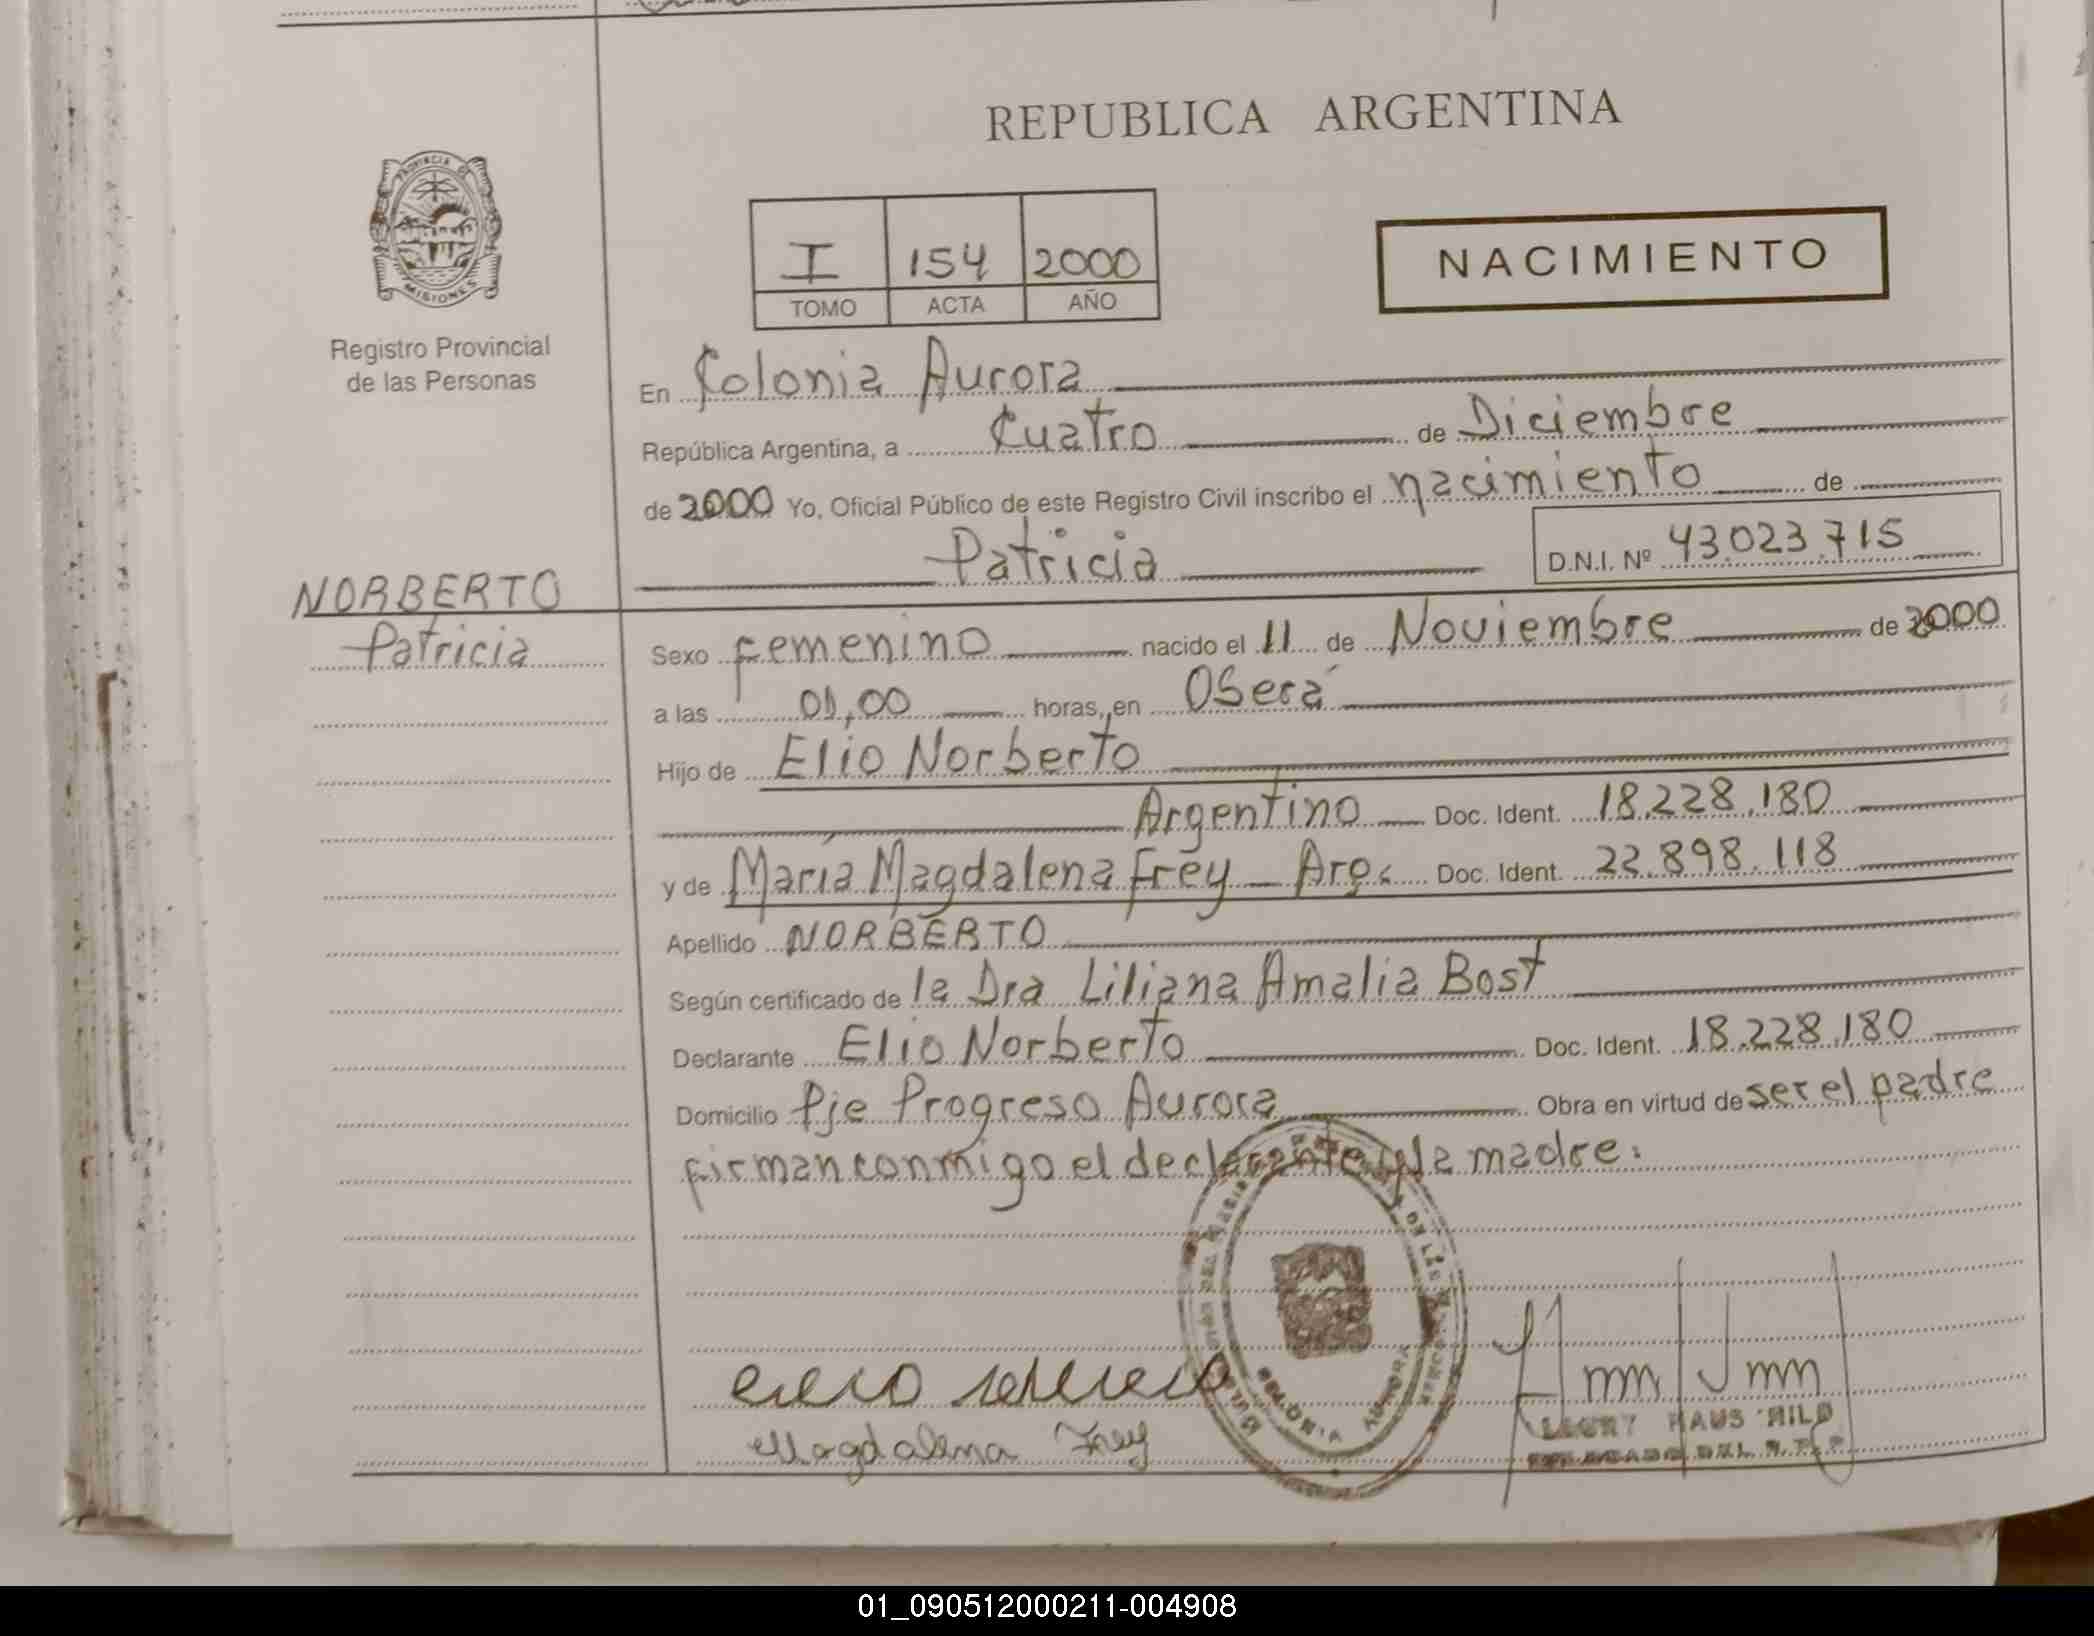 REPUBLICA ARGENTINA
PROVINCIA DE
MISIONES
Registro Provincial
de las Personas
I 154 2000
TOMO ACTA AÑO
NACIMIENTO
En Colonia Aurora
República Argentina, a Cuatro de Diciembre
de 2000 Yo, Oficial Público de este Registro Civil inscribo el nacimiento de
Patricia D.N.I. Nº 43.023.715
NORBERTO
Patricia
Sexo Femenino nacido el 11 de Noviembre de 2000
a las 01,00 horas, en Oberá
Hijo de Elio Norberto
Argentino Doc. Ident. 18.228.180
y de María Magdalena Frey Arg. Doc. Ident. 22.898.118
Apellido NORBERTO
Según certificado de la Dra Liliana Amalia Bost
Declarante Elio Norberto Doc. Ident. 18.228.180
Domicilio Pje Progreso Aurora Obra en virtud de ser el padre
firman conmigo el declarante y la madre.
COLONIA AURORA
Magdalena Frey
01_090512000211-004908